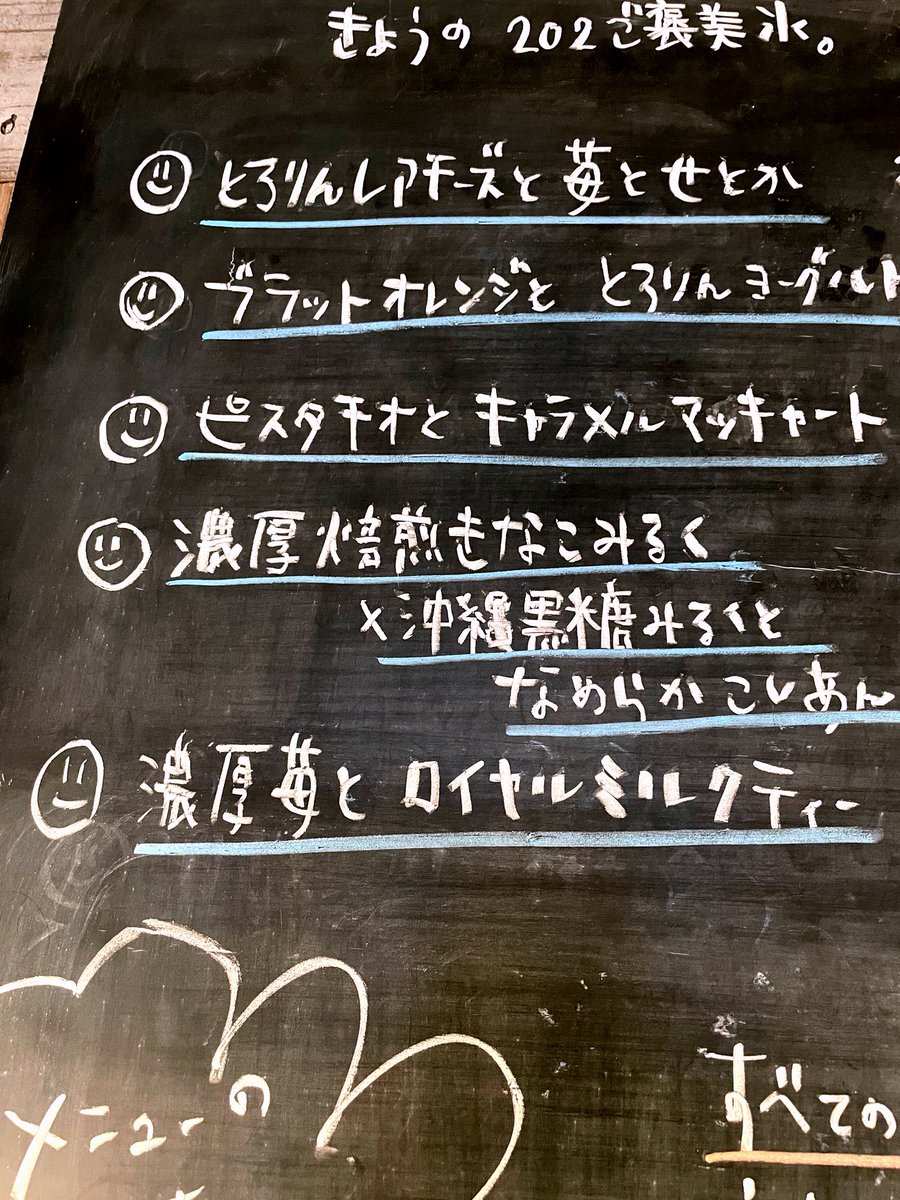 きょうの 202ご褒美氷。
とろりんレアチーズと苺とせとか
ブラットオレンジと とろりんヨーグルト
ピスタチオと キャラメルマッキャート
濃厚焙煎きなこみるく
×沖縄黒糖みるくと
なめらかこしあん
濃厚苺と ロイヤルミルクティー
メニューの
すべての